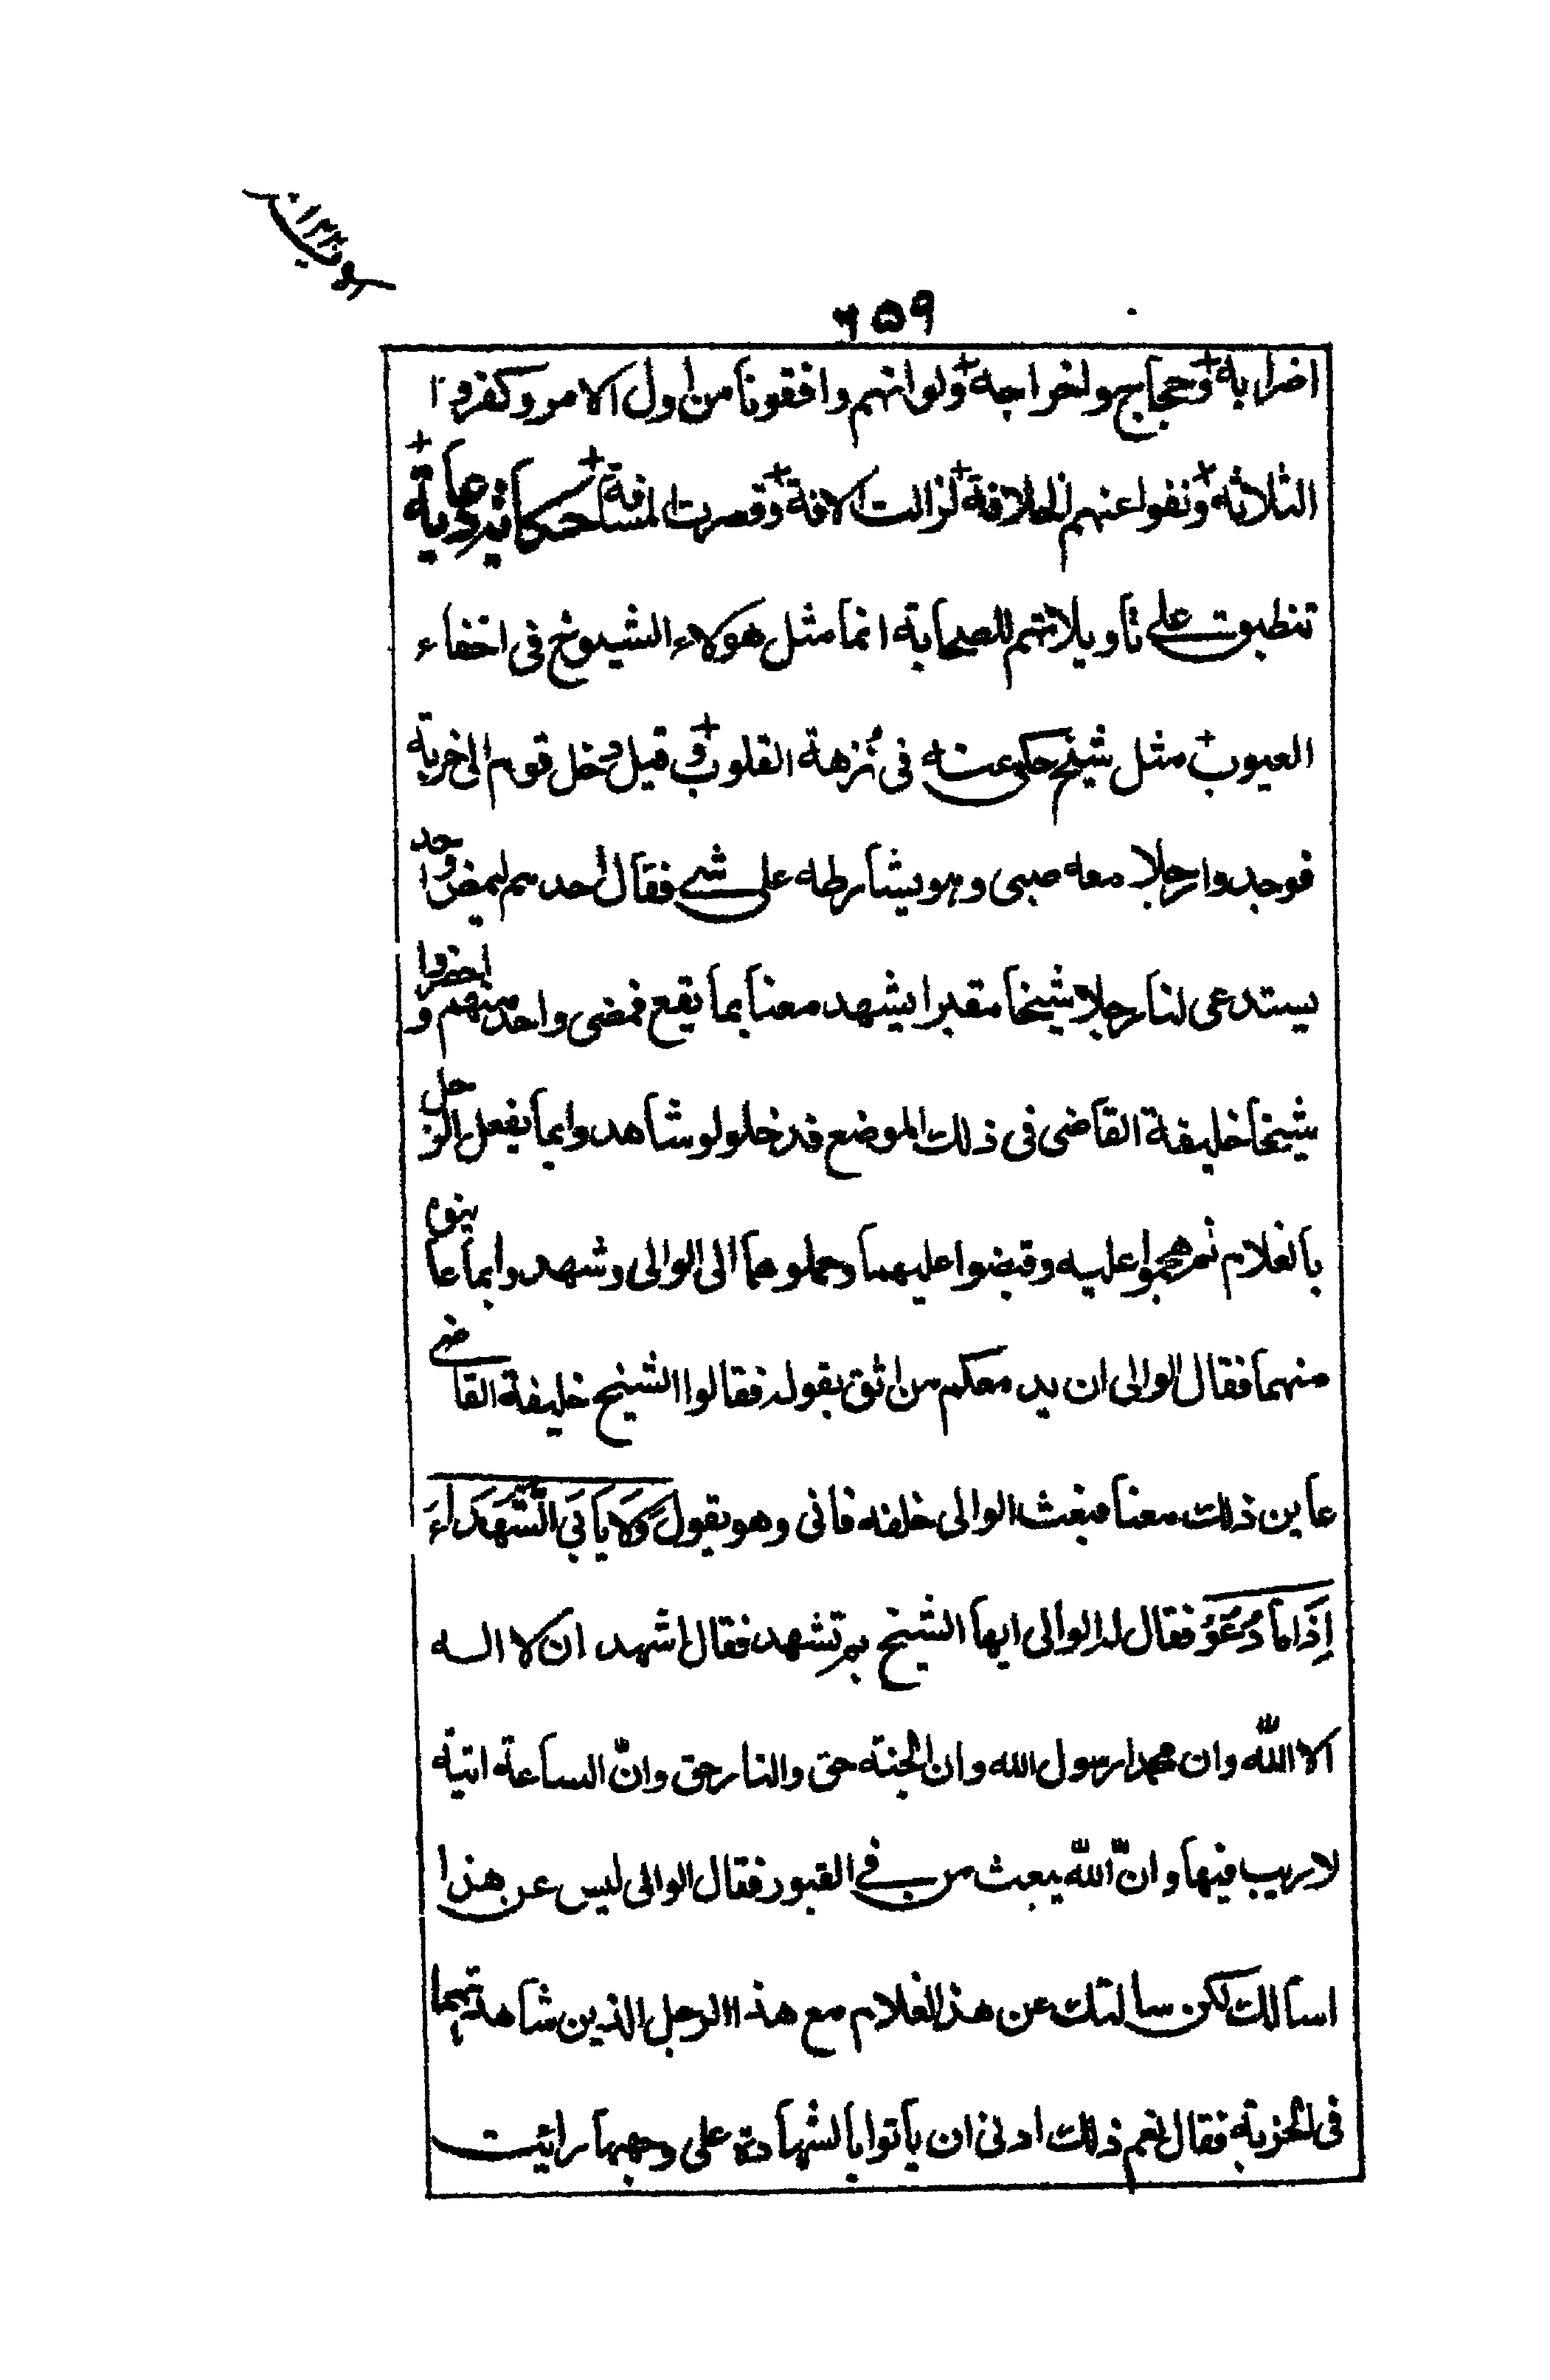 ۶۵۹
اضرابه وحجاج ولخراجه ولو انهم وافقونا من اول الامر وكفروا
الثلاثه ونفوا عنهم الخلافة لزالت الافة وقصرت المسافه حكاية
تنطبق على تاويلاتهم للصحابة انما مثل هولاء الشيوخ فى اخفاء
العيوب مثل شيخ حكى عنه فى نزهة القلوب قيل دخل قوم الى خربة
فوجدوا رجلا معه صبى وهو يشارطه على شى فقال احدهم ليمض واحد
يستدعى لنا رجلا شيخا مقبرا يشهد معنا بما يقع فمضى واحد منهم و احضروا
شيخا خليفة القاضى فى ذلك الموضع فدخلو لو شاهدوا بما يفعل الرجل
بالغلام ثم هجموا عليه وقبضوا عليهما وحملوهما الى الوالى وشهدوا بما عاينوه
منهما فقال الوالى ان يد معكم من اثق بقوله فقالوا الشيخ خليفة القاضى
عاين ذلك معنا فبعث الوالى خلفه فاتى وهو يقول وَلَا يَأبَ الشُّهَدَاءُ
إِذَا مَا دُعُوُ فقال له الوالى ايها الشيخ بم تشهد فقال اشهد ان لا اله
الا الله وان محمدا رسول الله وان الجنته حق والنار حق وانّ الساعة اتية
لا ريب فيها وانّ الله يبعث من فى القبور فقال الوالى ليس عن هذا
اسالك لكن سالتك عن هذا الغلام مع هذا الرجل الذين شاهدتهما
فى الخربة فقال نعم ذلك ادنى ان ياتوا بالشهادة على وجهها رائيت